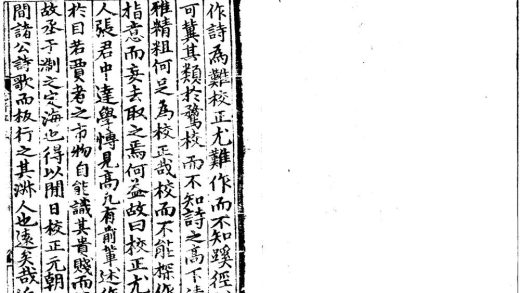 作詩爲難校正尤難作而不知蹊徑
可冀其類於騖校而不知詩之高下清
雅精粗何足爲校正哉校而不能探作
指意而妄去取之焉何益故曰校正尤
人張君中達學博見高凡有前筆述作
於目若賈者之市物自能識其貴賤而
故丞于淛之定海也得以閒日校正元朝
間諸公詩歌而板行之其淑人也遠矣哉